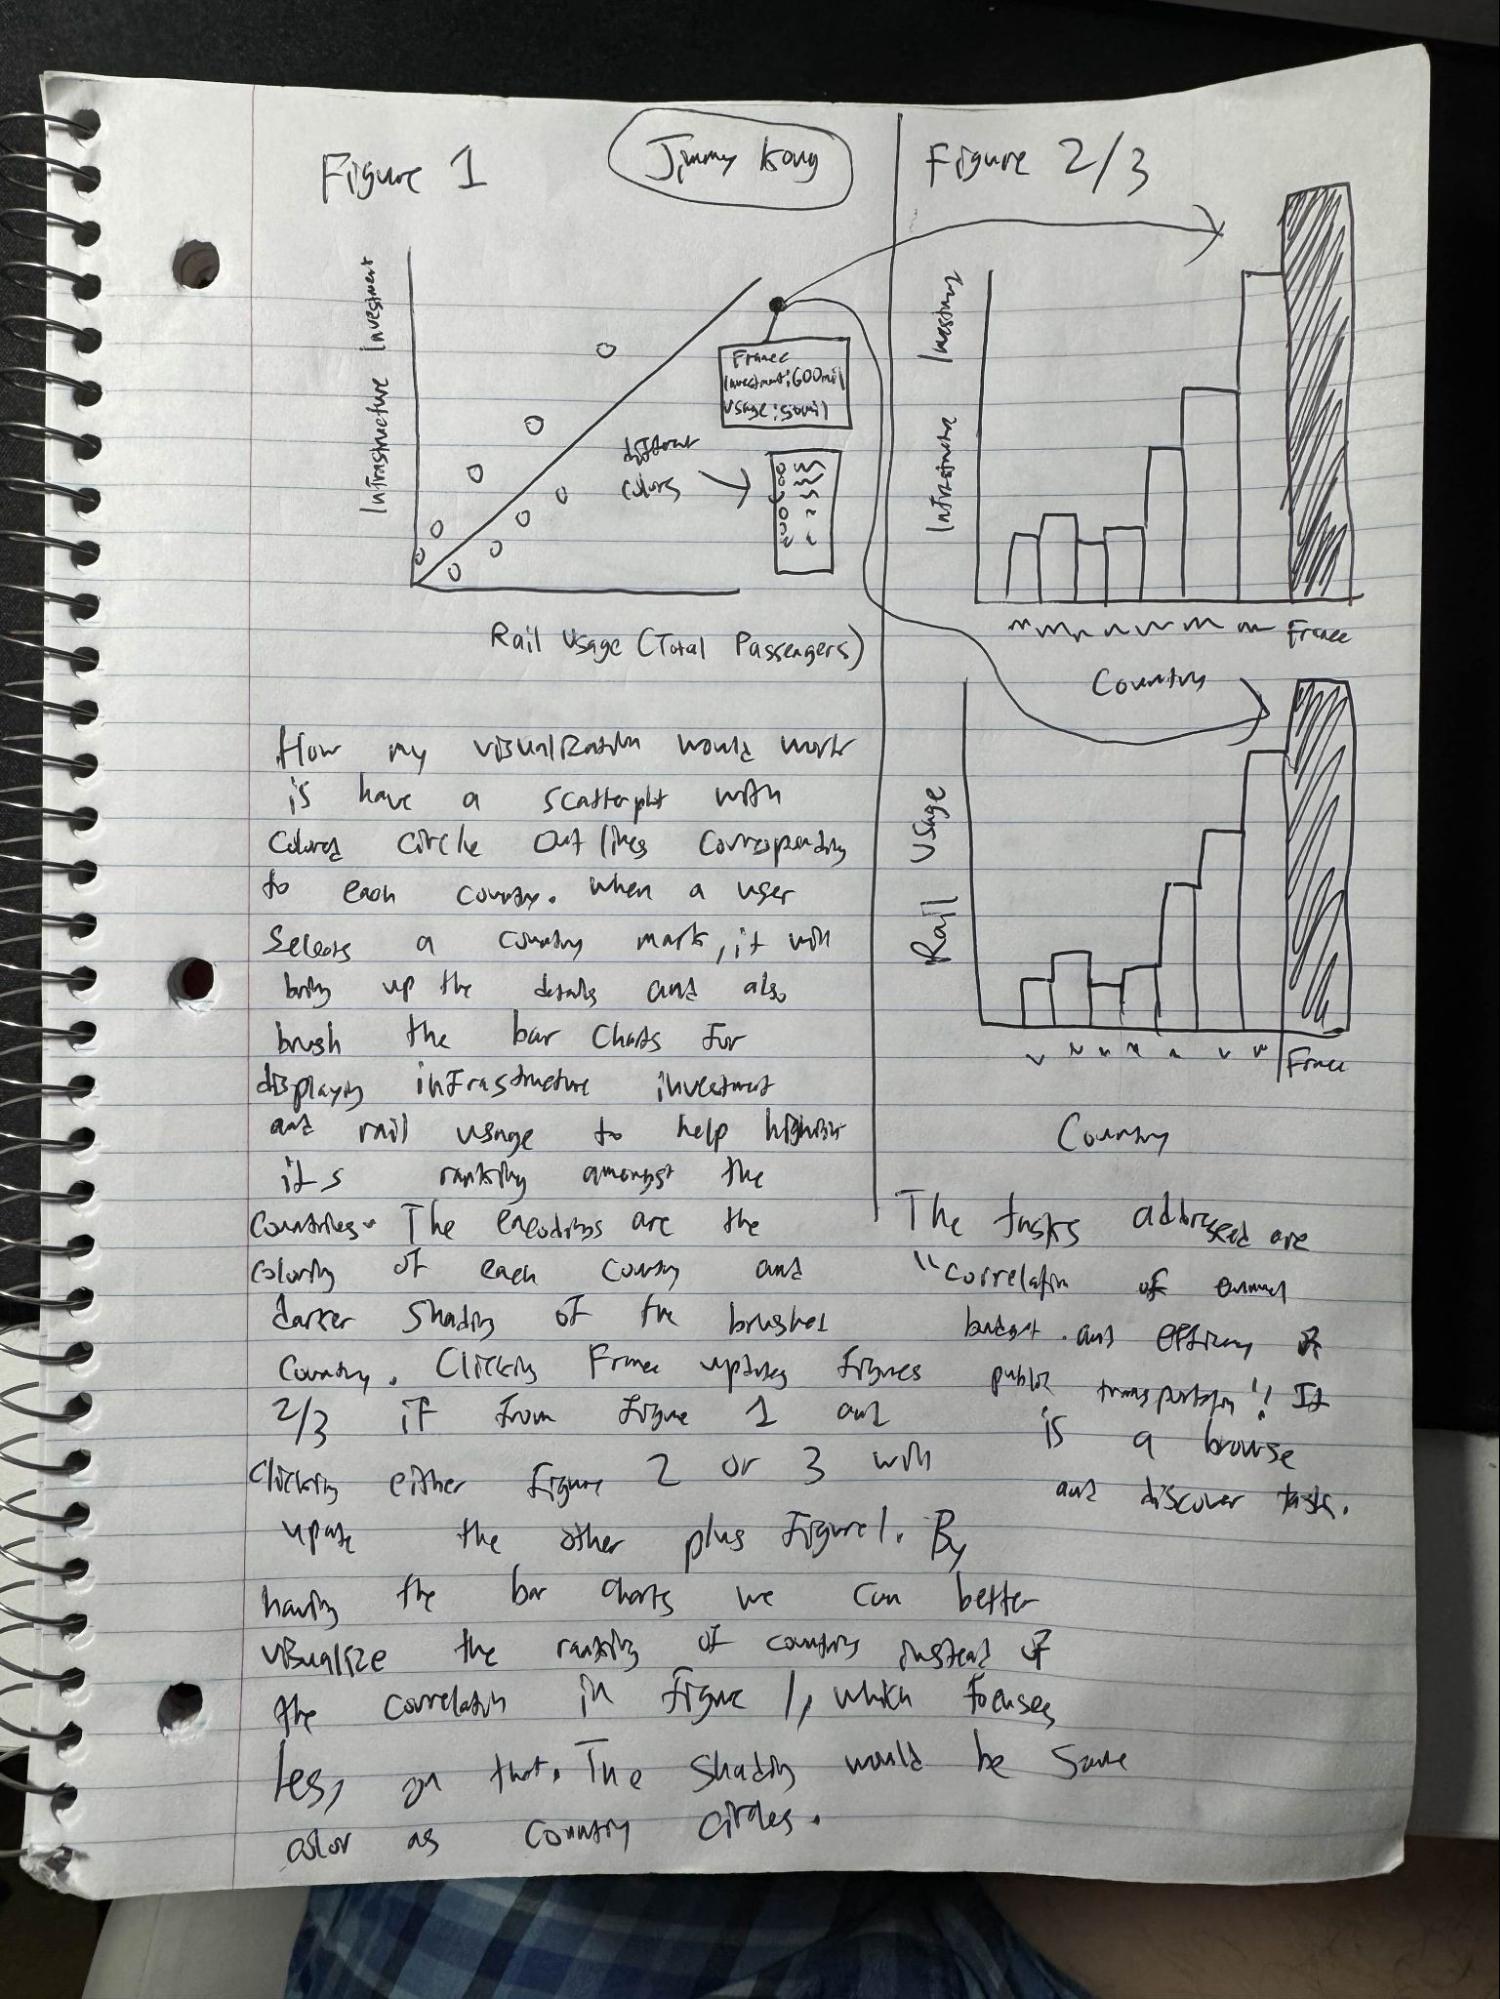 Figure 1
Jimmy Kong
Infrastructure Investment
France
Investment: 600mil
Usage: 50mil
different
colors
Rail Usage (Total Passengers)
Figure 2/3
Infrastructure Investment
France
Country
Rail Usage
France
Country
How my visualization would work
is have a scatterplot with
colored circle outlines corresponding
to each country. When a user
selects a country mark, it will
bring up the details and also
brush the bar charts for
displaying infrastructure investment
and rail usage to help highlight
it's ranking amongst the
countries. The encodings are the
coloring of each country and
darker shading of the brushed
country. Clicking France updates figures
2/3 if from figure 1 and
clicking either figure 2 or 3 will
update the other plus figure 1. By
having the bar charts we can better
visualize the ranking of country instead of
the correlation in figure 1, which focuses
less, on that. The shading would be same
color as country circles.
The tasks addressed are
"correlation of annual
budget and efficiency of
public transportation". It
is a browse
and discover task.